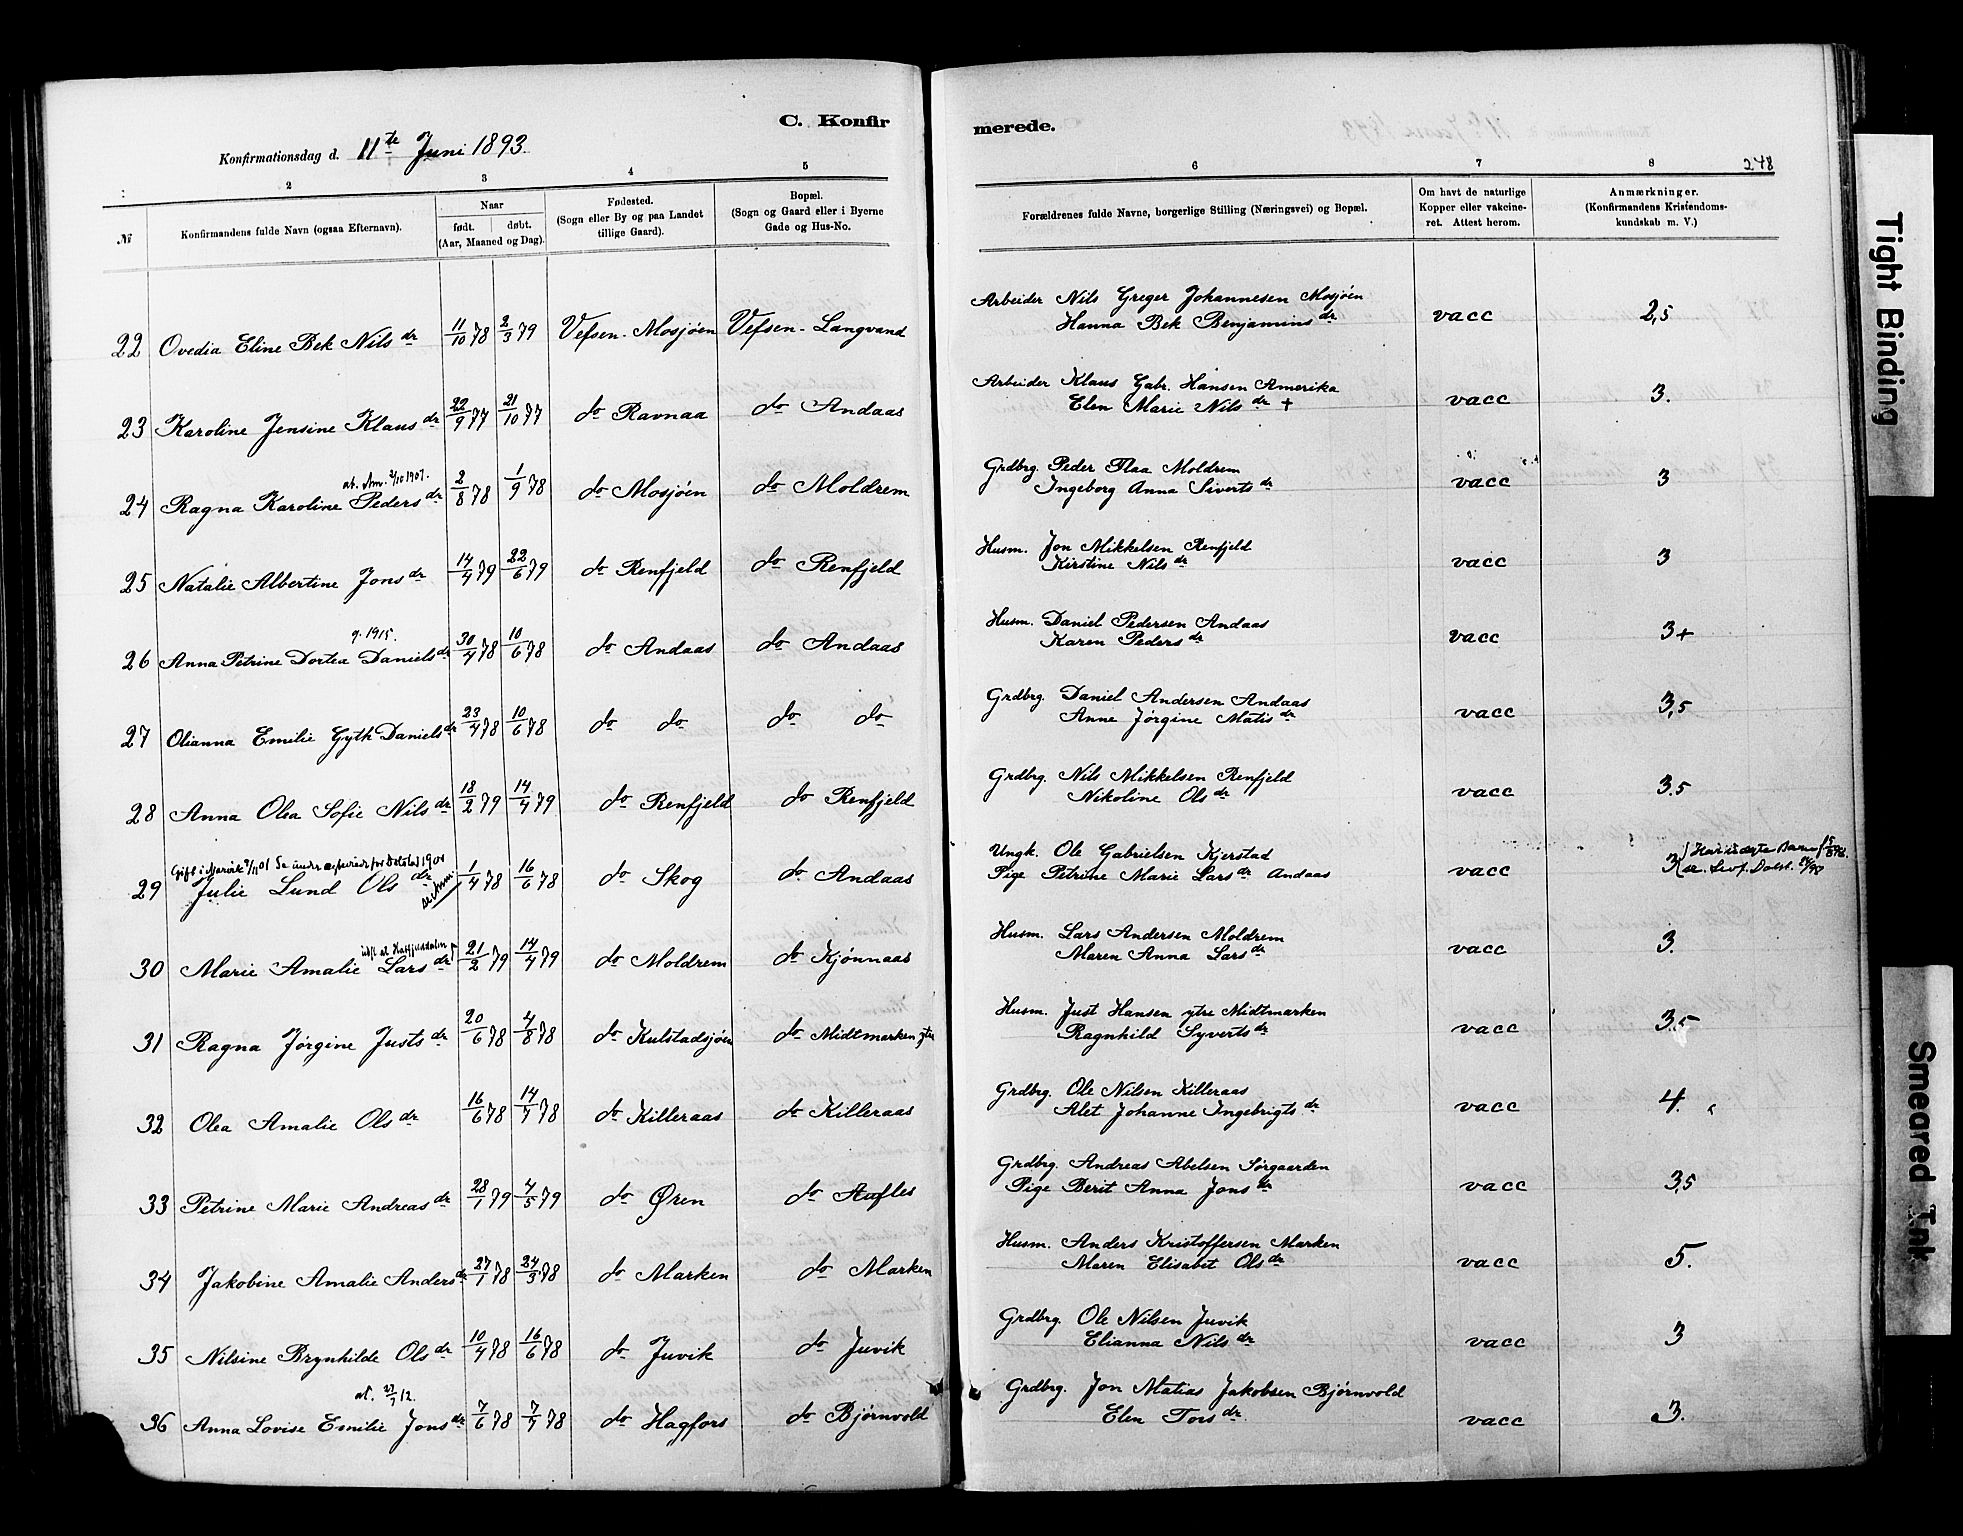 C. Konfirmerede.
Konfirmationsdag d. 11te Juni 1893.
248
2 3 4 5 6 7 8
№
Konfirmandens fulde Navn (ogsaa Efternavn).
Naar
født. døbt.
(Aar, Maaned og Dag).
Fødested.
(Sogn eller By og paa Landet
tillige Gaard).
Bopæl.
(Sogn og Gaard eller i Byerne
Gade og Hus-No.
Forældrenes fulde Navne, borgerlige Stilling (Næringsvei) og Bopæl.
Om havt de naturlige
Kopper eller vakcine-
ret. Attest herom.
Anmærkninger.
(Konfirmandens Kristendoms-
kundskab m. V.)
22 Ovedia Eline Bek Nilsdr 11/10 78 2/3 79 Vefsen-Mosjøen Vefsen-Langvand Arbeider Nils Greger Johannesen Mosjøen vacc 2,5
Hanna Bek Benjaminsdr
23 Karoline Jensine Klausdr 22/9 77 21/10 77 do Ravnaa do Andaas Arbeider Klaus Gabr. Hansen Amerika vacc 3.
Elen Marie Nilsdr +
at. Am. 2/10 1907.
24 Ragna Karoline Pedersdr 2/8 78 1/9 78 do Mosjøen do Moldrem Grdbrg. Peder Flaa Moldrem vacc 3
Ingeborg Anna Sivertsdr
25 Natalie Albertine Jonsdr 14/4 79 22/6 79 do Renfjeld do Renfjeld Husm. Jon Mikkelsen Renfjeld vacc 3
Kirstine Nilsdr
g. 1915.
26 Anna Petrine Dortea Danielsdr 30/4 78 10/6 78 do Andaas do Andaas Husm. Daniel Pedersen Andaas vacc 3+
Karen Pedersdr
27 Olianna Emilie Gyth Danielsdr 23/4 78 10/6 78 do do do do Grdbrg. Daniel Andersen Andaas vacc 3,5
Anne Jørgine Matisdr
28 Anna Olea Sofie Nilsdr 18/2 79 14/4 79 do Renfjeld do Renfjeld Grdbrg. Nils Mikkelsen Renfjeld vacc 3.5
Nikoline Olsdr
Gift i Narvik
29 Julie Lund Olsdr 1/4 78 16/6 78 do Skog do Andaas Ungk. Ole Gabrielsen Kjerstad vacc 3
Pige Petrine Marie Larsdr Andaas
30 Marie Amalie Larsdr 21/2 79 14/4 79 do Moldrem do Kjønnaas Husm. Lars Andersen Moldrem vacc 3.
Maren Anna Larsdr
31 Ragna Jørgine Justsdr 20/6 78 4/8 78 do Kulstadsjøen do Midtmarken ytre Husm. Just Hansen ytre Midtmarken vacc 3.5
Ragnhild Syvertsdr
32 Olea Amalie Olsdr 16/6 78 14/7 78 do Killeraas do Killeraas Grdbrg. Ole Nilsen Killeraas vacc 4.
Alet Johanne Ingebrigtsdr
33 Petrine Marie Andreasdr 28/1 79 4/5 79 do Øren do Aufles Grdbrg. Andreas Abelsen Sørgaarden vacc 3,5
Pige Berit Anna Jonsdr
34 Jakobine Amalie Andersdr 27/1 78 24/3 78 do Marken do Marken Husm. Anders Kristoffersen Marken vacc 5.
Maren Elisabet Olsdr
35 Nilsine Brynhilde Olsdr 10/4 78 16/6 78 do Juvik do Juvik Grdbrg. Ole Nilsen Juvik vacc 3
Elianna Nilsdr
36 Anna Lovise Emilie Jonsdr 7/6 78 7/7 78 do Hagfors do Bjørnvold Grdbrg. Jon Matias Jakobsen Bjørnvold vacc 3.
Elen Torsdr
Tight Binding
Smeared Ink